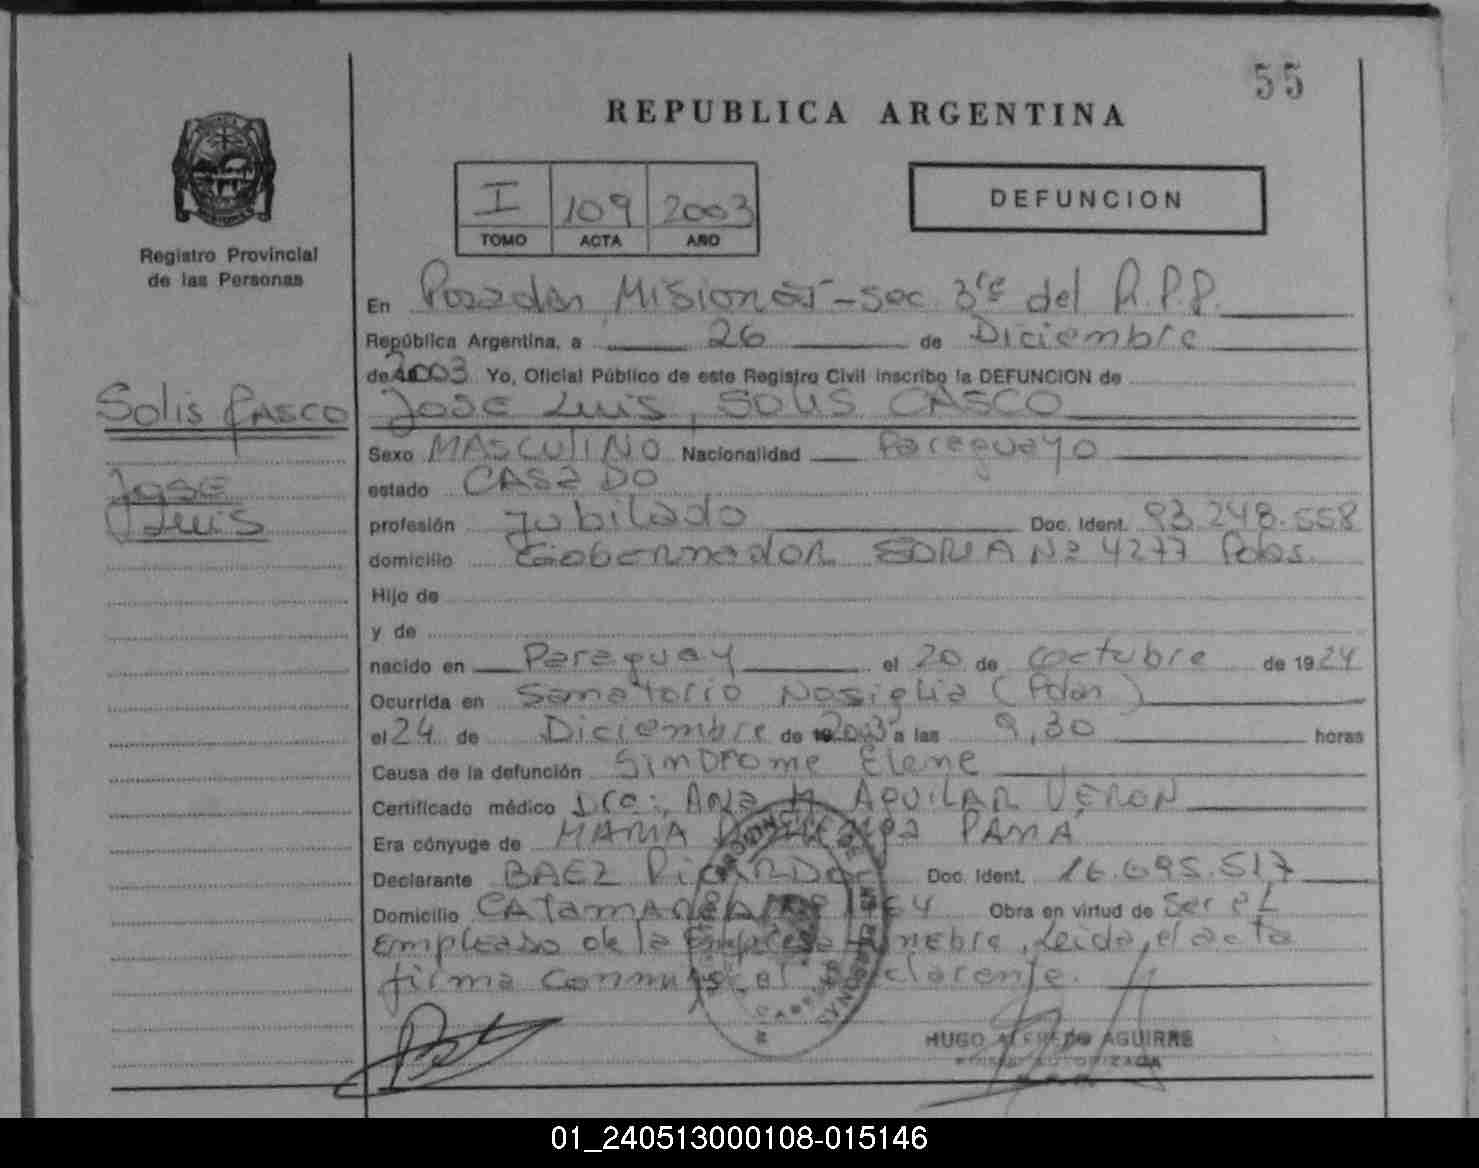 55
REPUBLICA ARGENTINA
I 109 2003
TOMO ACTA AÑO
DEFUNCION
Registro Provincial
de las Personas
En Posadas Misiones - Sec. 3ra del R.P.P.
República Argentina, a 26 de Diciembre
de 2003 Yo, Oficial Público de este Registro Civil inscribo la DEFUNCION de
Solis Casco
Jose Luis, SOLIS CASCO
Jose
Luis
Sexo MASCULINO Nacionalidad Paraguayo
estado CASADO
profesión Jubilado Doc. Ident. 93.248.558
domicilio Gobernador SORIA Nº 4277 Pdas.
Hijo de
y de
nacido en Paraguay el 20 de octubre de 1924
Ocurrida en Sanatorio Nosiglia (Pdas)
el 24 de Diciembre de 2003 a las 9,30 horas
Causa de la defunción Sindrome
Certificado médico Dra: Ana M AGUILAR VERON
Era cónyuge de MARIA PAMA
Declarante BAEZ RICARDO Doc. Ident. 16.695.517
Domicilio CATAMARCA 64 Obra en virtud de Ser el
empleado de la Empresa Funebre, Leida el acta
firma conmigo el declarante.
HUGO ALFREDO AGUIRRE
FIRMA AUTORIZADA
01_240513000108-015146